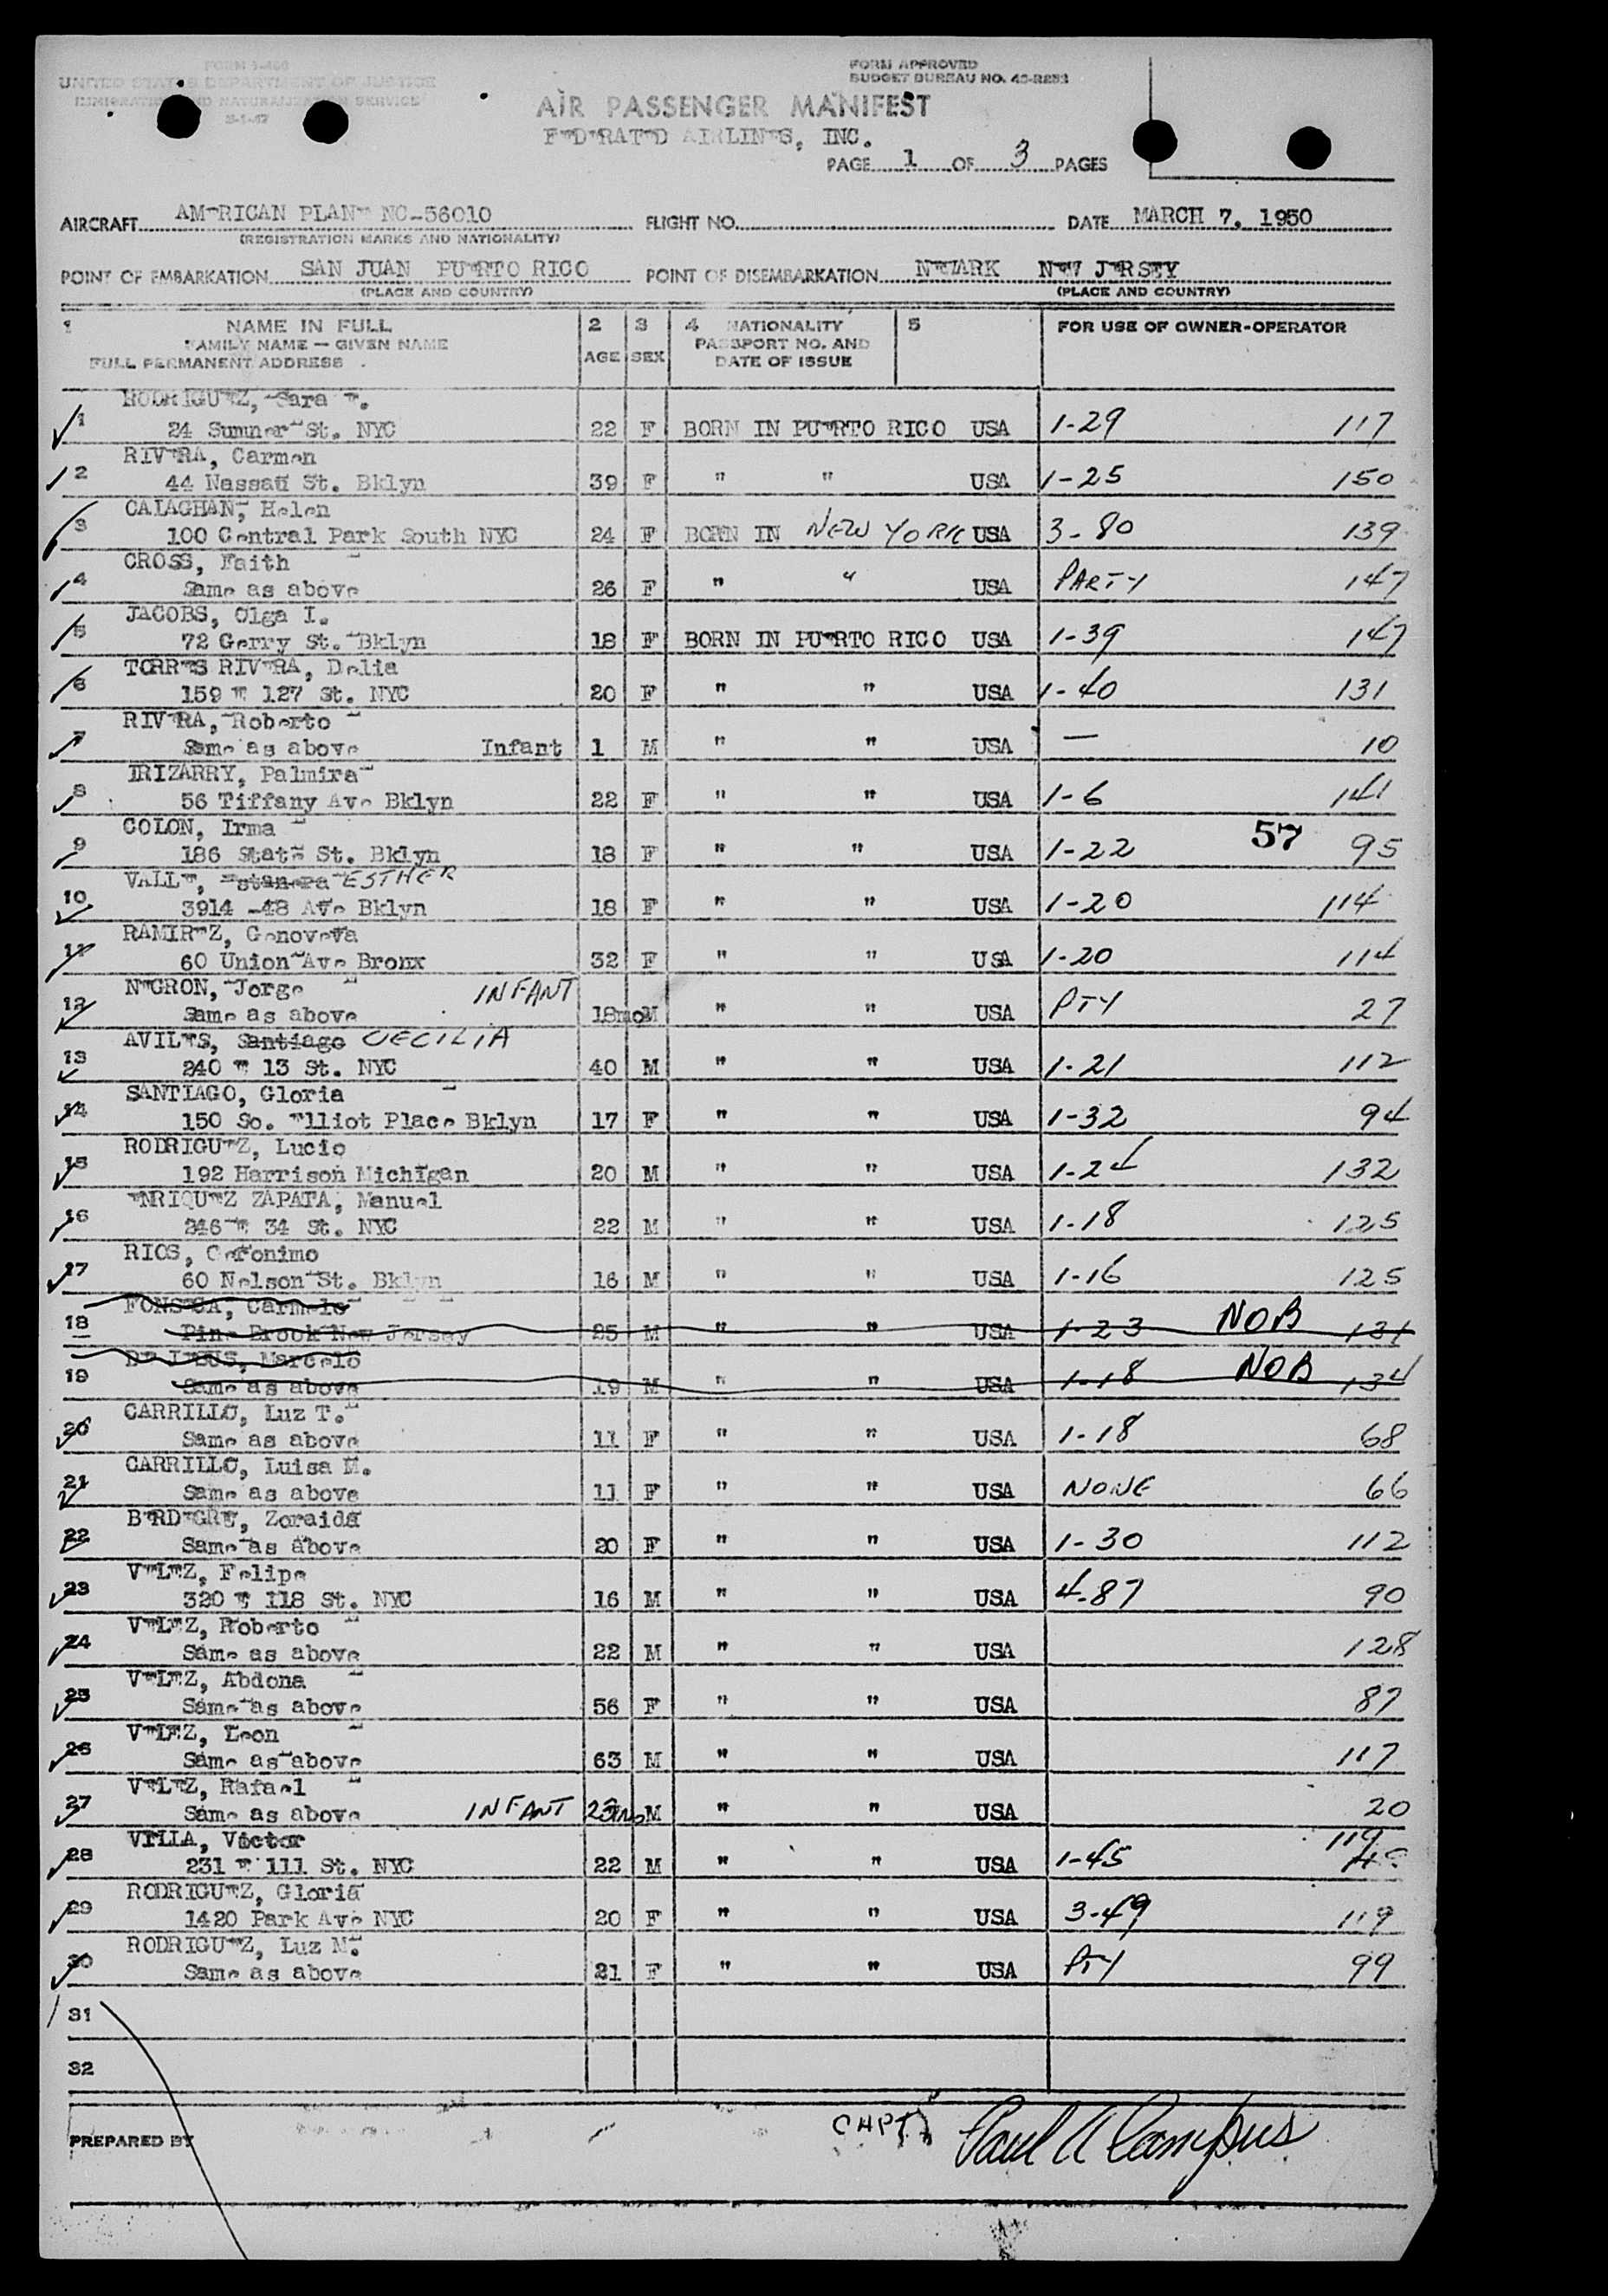 FORM I-466
UNITED STATES DEPARTMENT OF JUSTICE
IMMIGRATION AND NATURALIZATION SERVICE
FORM APPROVED
BUDGET BUREAU NO. 43-R283
AIR PASSENGER MANIFEST
FEDERATED AIRLINES, INC.
PAGE 1 OF 3 PAGES
AIRCRAFT AMERICAN PLANE NC-56010 FLIGHT NO. DATE MARCH 7, 1950
(REGISTRATION MARKS AND NATIONALITY)
POINT OF EMBARKATION SAN JUAN PUERTO RICO POINT OF DISEMBARKATION NEWARK NEW JERSEY
(PLACE AND COUNTRY) (PLACE AND COUNTRY)
1 NAME IN FULL 2 3 4 NATIONALITY 5 FOR USE OF OWNER-OPERATOR
FAMILY NAME — GIVEN NAME AGE SEX PASSPORT NO. AND
FULL PERMANENT ADDRESS DATE OF ISSUE
RODRIGUEZ, Sara E.
1 24 Sumner St. NYC 22 F BORN IN PUERTO RICO USA 1-29 117
RIVERA, Carmen
2 44 Nassau St. Bklyn 39 F " " USA 1-25 150
CALAGHAN, Helen
3 100 Central Park South NYC 24 F BORN IN NEW YORK USA 3-80 139
CROSS, Faith
4 Same as above 26 F " " USA PARTY 147
JACOBS, Olga I.
5 72 Gerry St. Bklyn 18 F BORN IN PUERTO RICO USA 1-39 147
TORRES RIVERA, Delia
6 159 E 127 St. NYC 20 F " " USA 1-40 131
RIVERA, Roberto
7 Same as above Infant 1 M " " USA — 10
IRIZARRY, Palmira
8 56 Tiffany Ave Bklyn 22 F " " USA 1-6 141
COLON, Irma 57
9 186 State St. Bklyn 18 F " " USA 1-22 95
VALLE, ESTHER
10 3914 -48 Ave Bklyn 18 F " " USA 1-20 114
RAMIREZ, Genoveva
11 60 Union Ave Bronx 32 F " " USA 1-20 114
NEGRON, Jorge INFANT
12 Same as above 18mo M " " USA PTY 27
AVILES, Santiago CECILIA
13 240 E 13 St. NYC 40 M " " USA 1-21 112
SANTIAGO, Gloria
14 150 So. Elliot Place Bklyn 17 F " " USA 1-32 94
RODRIGUEZ, Lucio
15 192 Harrison Michigan 20 M " " USA 1-24 132
ENRIQUEZ ZAPATA, Manuel
16 246 E 34 St. NYC 22 M " " USA 1-18 125
RIOS, Geronimo
17 60 Nelson St. Bklyn 16 M " " USA 1-16 125
FONSECA, Carmelo
18 Pine Brook New Jersey 25 M " " USA 1-23 NOB 131
DE JESUS, Marcelo
19 Same as above 19 M " " USA 1-18 NOB 134
CARRILLO, Luz T.
20 Same as above 11 F " " USA 1-18 68
CARRILLO, Luisa M.
21 Same as above 11 F " " USA NONE 66
BERDEGRE, Zoraida
22 Same as above 20 F " " USA 1-30 112
VELEZ, Felipe
23 320 E 118 St. NYC 16 M " " USA 4-87 90
VELEZ, Roberto
24 Same as above 22 M " " USA 128
VELEZ, Abdona
25 Same as above 56 F " " USA 87
VELEZ, Leon
26 Same as above 63 M " " USA 117
VELEZ, Rafael
27 Same as above INFANT 23mo M " " USA 20
VILLA, Victor 119
28 231 E 111 St. NYC 22 M " " USA 1-45
RODRIGUEZ, Gloria
29 1420 Park Ave NYC 20 F " " USA 3-49 119
RODRIGUEZ, Luz M.
30 Same as above 21 F " " USA PTY 99
31
32
PREPARED BY CAPT. Paul A Campus